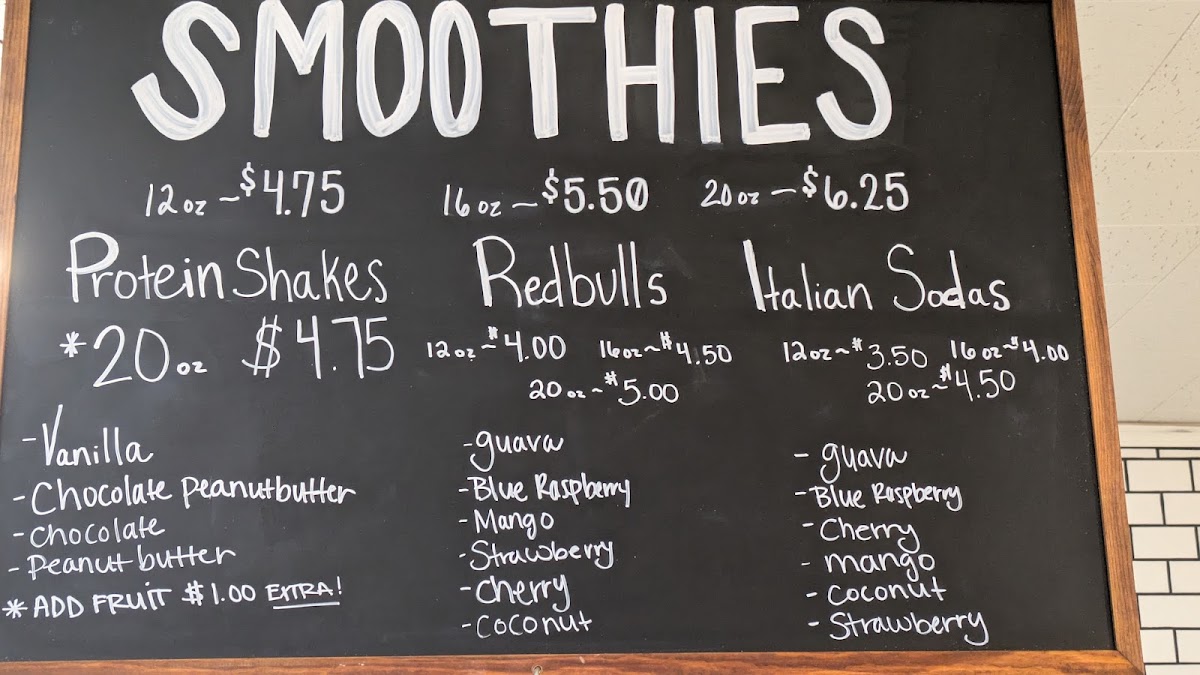 SMOOTHIES
12oz ~ $4.75 16oz ~ $5.50 20oz ~ $6.25
Protein Shakes
*20oz $4.75
-Vanilla
-Chocolate Peanutbutter
-Chocolate
-Peanut butter
*ADD FRUIT $1.00 EXTRA!
Redbulls
12oz ~ $4.00 16oz ~ $4.50
20oz ~ $5.00
-guava
-Blue Raspberry
-Mango
-Strawberry
-cherry
-coconut
Italian Sodas
12oz ~ $3.50 16oz ~ $4.00
20oz ~ $4.50
- guava
-Blue Raspberry
-Cherry
- mango
- coconut
- Strawberry